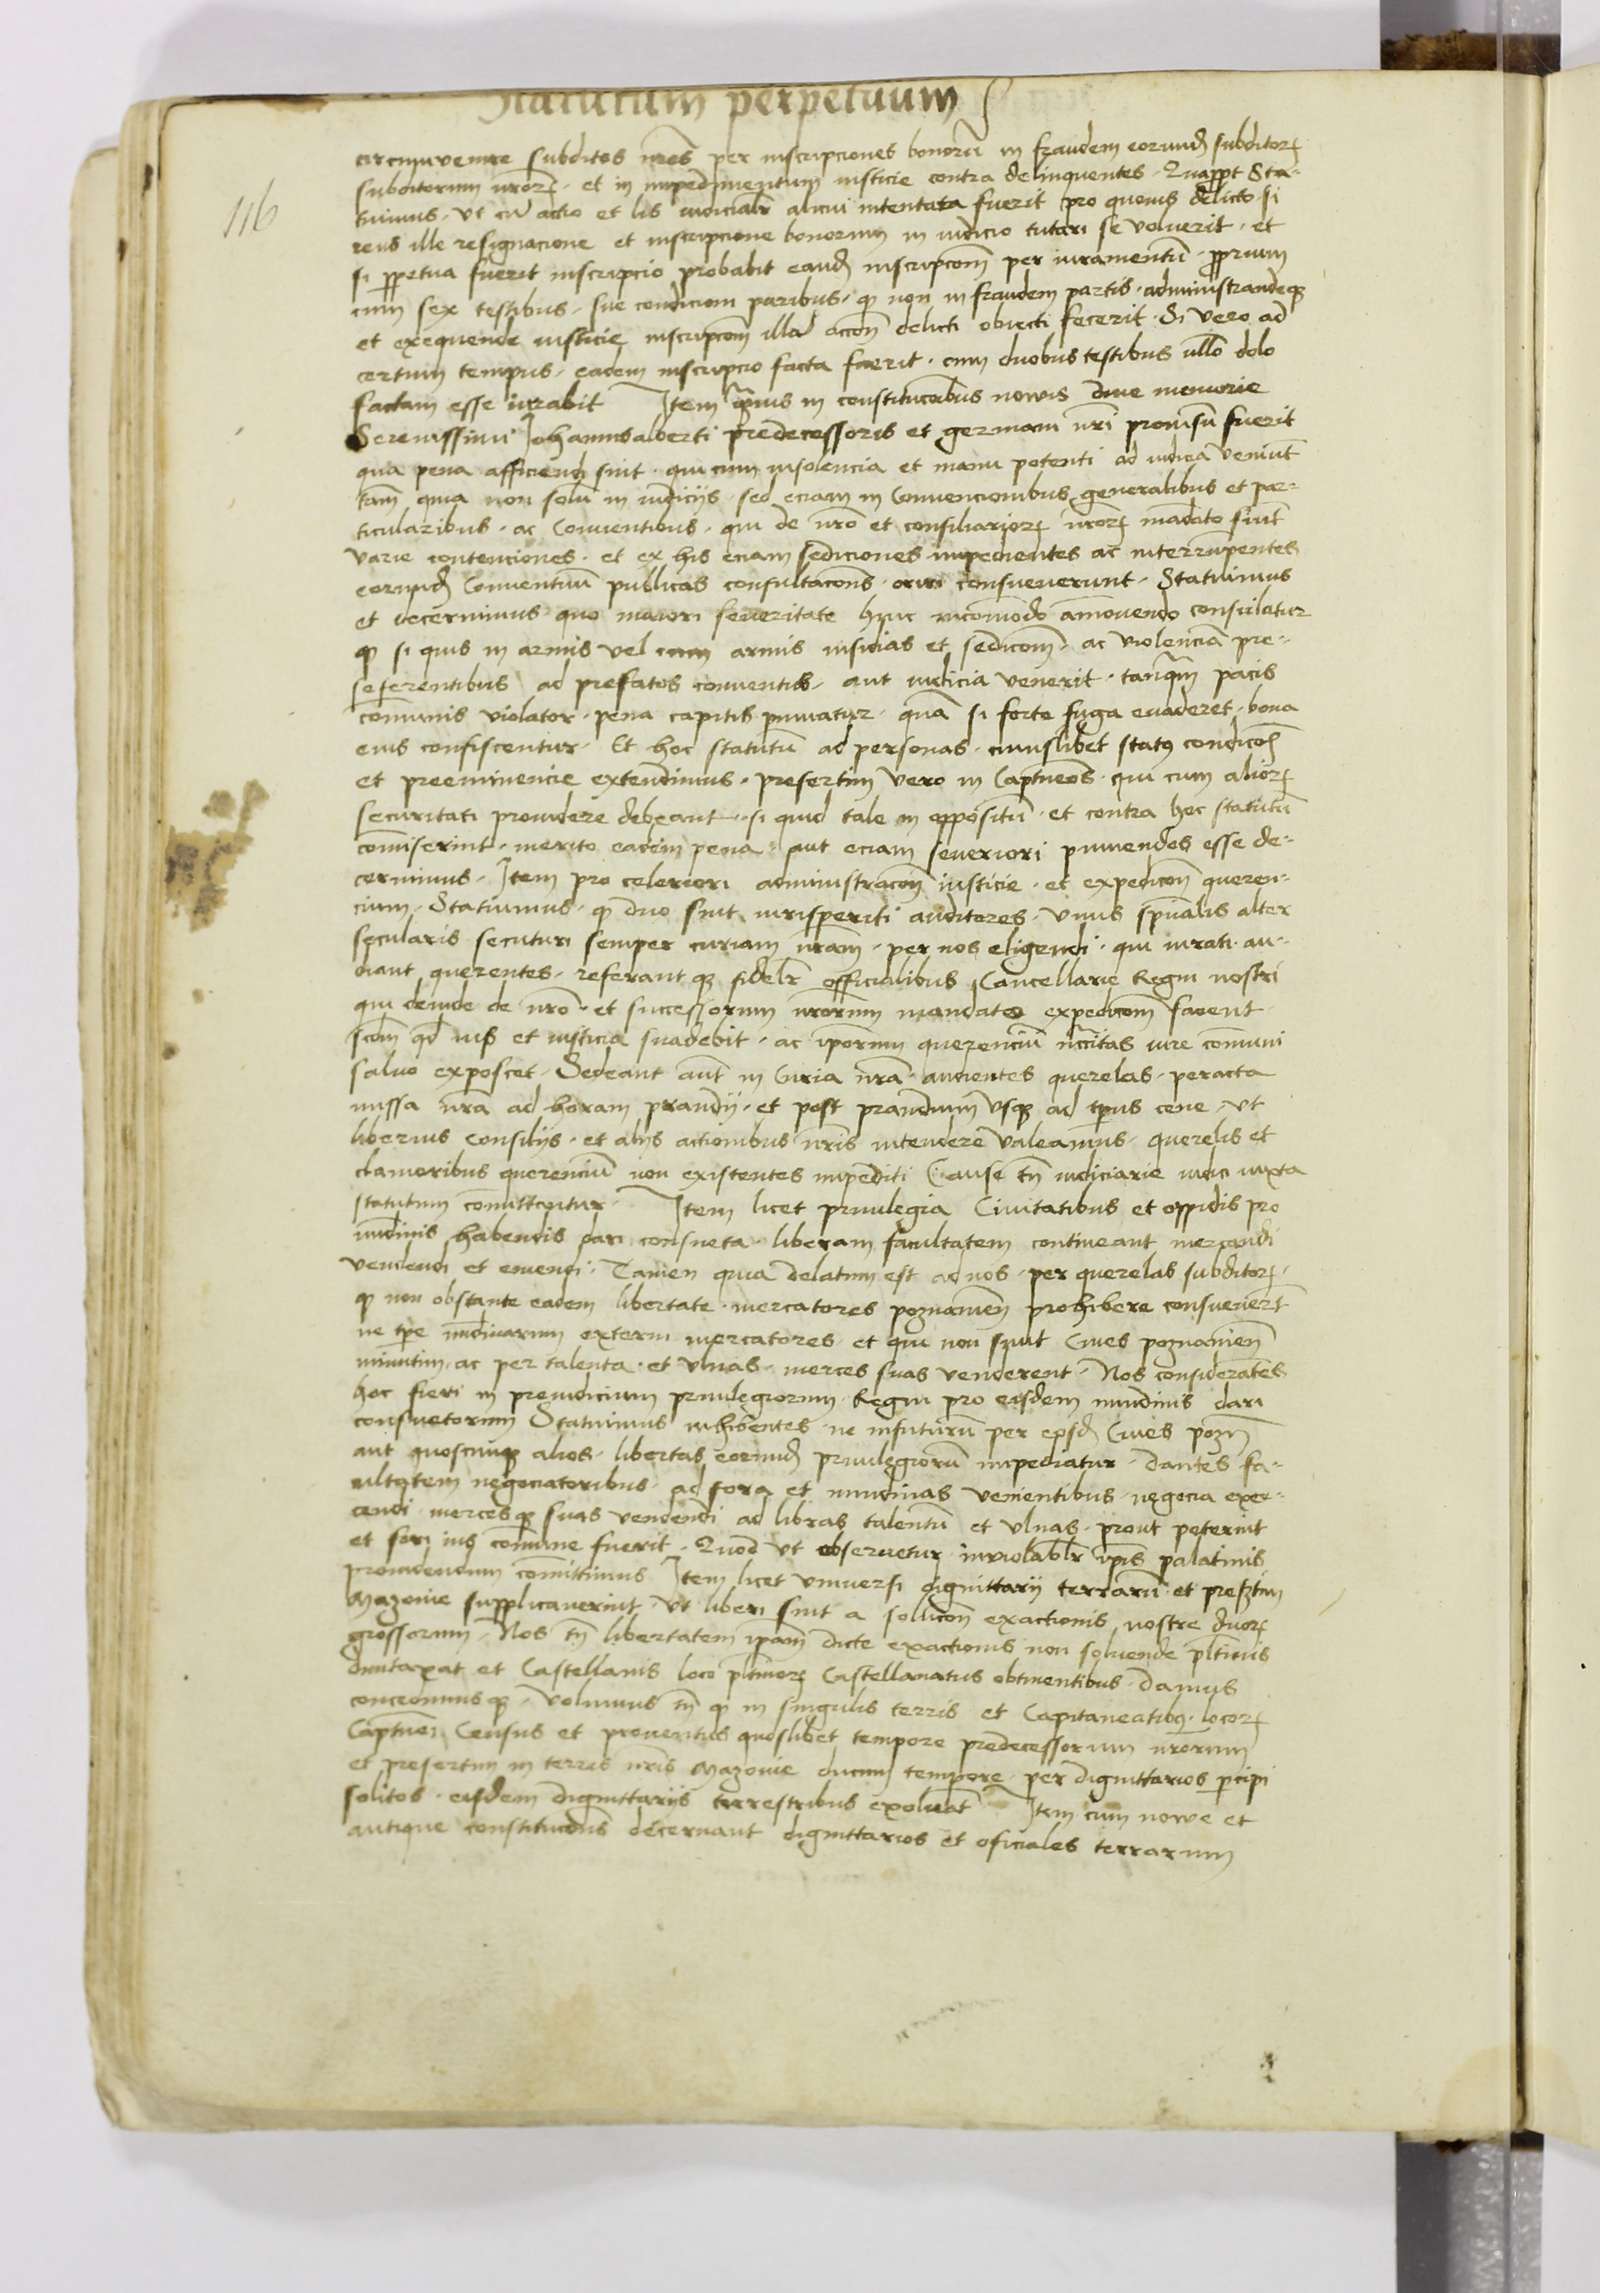 Statutum perpetuum
116
circumvenire subditos nr̄os per inscripciones bonorū in fraudem eorund̄ subditoꝝ
subditorum nr̄oꝝ · et in impedimentum iusticie contra delinquentes · Quapp̄t Sta-
tuimus · Ut cū actio et lis iudicialr̄ alicui intentata fuerit pro quovis delicto · si
reus ille resignacione et inscripcione bonorum in iudicio tutari se voluerit · et
si p̄petua fuerit inscripcio probabit eand̄ inscripcōm per iuramentū · p̄prium
cum sex testibus · sue condicioni paribus · ꝙ non in fraudem partis · administrandeqꝫ
et exequende iusticie inscripcōm illā accōn delicti obiecti fecerit · Si vero ad
certum tempus · eadem inscripcio facta fuerit · cum duobus testibus ullo dolo
factam esse iurabit Item q̄mvis in constitucōibus novis dive memorie
Serenissimi Johannisalberti predecessoris et germani nr̄i provisū fuerit
qua pena afficiendi sint · qui cum insolencia et manu potenti ad iudicia veniūt
tam̄ quia non solū in iudicijs · sed eciam in Convencionibus generalibus et par-
ticularibus · ac Conventibus · qui de nr̄o et consiliarioꝝ nr̄oꝝ mādato fiunt
varie contenciones · et ex his eciam sediciones impedientes ac interrūpentes
eorund̄ Conventuū publicas consultacōns · oriri consueverunt · Statuimus
et decernimus quo maiori severitate huic incōmodo amovendo consulatur
ꝙ si quis in armis vel cum armis insidias et sedicōm · ac violenciā pre-
seferentibus ad prefatos conventus · aut iudicia venerit · tanq̄m pacis
cōmunis violator · pena capitis puniatur · quā si forte fuga evaderet · bona
eius confiscentur · Et hoc statutū ad personas · cuiuslibet statꝰ condicōis
et preeminencie extendimus · presertim vero in Capitneos · qui cum alioꝝ
securitati providere debeant · si quid tale in oppositū · et contra hoc statutū
cōmiserint · merito eadem pena · aut eciam severiori puniendos esse de-
cernimus · Item pro celeriori administracōn iusticie · et expedicōn queren-
cium · Statuimus · ꝙ duo sint iurisperiti auditores · Unus sp̄ualis alter
secularis secuturi semper curiam nr̄am · per nos eligendi · qui iurati au-
diant querentes · referant qꝫ fidelr̄ officialibus Cancellarie Regni nostri
qui deinde de nr̄o · et successorum nr̄orum mandato expedicōm facient
scdm̄ qd̄ ius et iusticia suadebit · ac ip̄orum querenciū necc̄itas iure cōmuni
salvo exposcet · Sedeant aūt in Curia nr̄a · audientes querelas · peracta
missa nr̄a ad horam prandij · et post prandium usqꝫ ad tp̄us cene · ut
liberius consilijs · et alijs actionibus nr̄is intendere valeamus · querelis et
clamoribus querenciū non existentes impediti Cause tn̄ iudiciarie iudici iuxta
statutum cōmittentur · Item licet privilegia Civitatibus et oppidis pro
nūdinis habendis dari consueta · liberam facultatem contineant mercandi
vendendi et emendi · Tamen quia delatum est ad nos · per querelas subditoꝝ ·
ꝙ non obstante eadem libertate · mercatores poznanien̄ prohibere consuevert̄
ne tp̄e nūdinarum externi mercatores · et qui non sunt Cives poznanien̄
minutim · ac per talenta · et ulnas · merces suas venderent · Nos considerātes
hoc fieri in preiudicium privilegiorum · Regni pro eisdem nundinis dari
consuetorum Statuimus inhibentes · ne infuturū per eosd̄ Cives pozn̄
aut quoscunqꝫ alios · libertas eorund̄ privilegiorū impediatur · Dantes fa-
cultatem negociatoribus · ad fora et nundinas venientibus · negocia exer-
cendi · mercesqꝫ suas vendendi ad libras talentū et ulnas · prout petierint
et fori ius cōmune fuerit · Quod ut observetur inviolablr̄ ip̄is palatinis
providendum cōmittimus Item licet universi dignittarij terrarū · et presertim
Mazovie supplicaverint · Ut liberi sint a solucōn exactionis nostre duoꝝ
grossorum · Nos tn̄ libertatem ip̄am dicte exactionis non solvende pltinis
duntaxat et Castellanis loco pltinoꝝ Castellanatus obtinentibus · Damus
concedimusqꝫ · Volumus tn̄ ꝙ in singulis terris et Capitaneatibꝰ · locoꝝ
Captnei Census et proventus quoslibet tempore predecessorum nr̄orum
et presertim in terris nr̄is Mazovie ducum tempore · per dignittarios p̄cipi
solitos · eisdem dignittarijs terrestribus exolvāt Item cum nowe et
antique constitucōns decernant dignittarios et oficiales terrarum